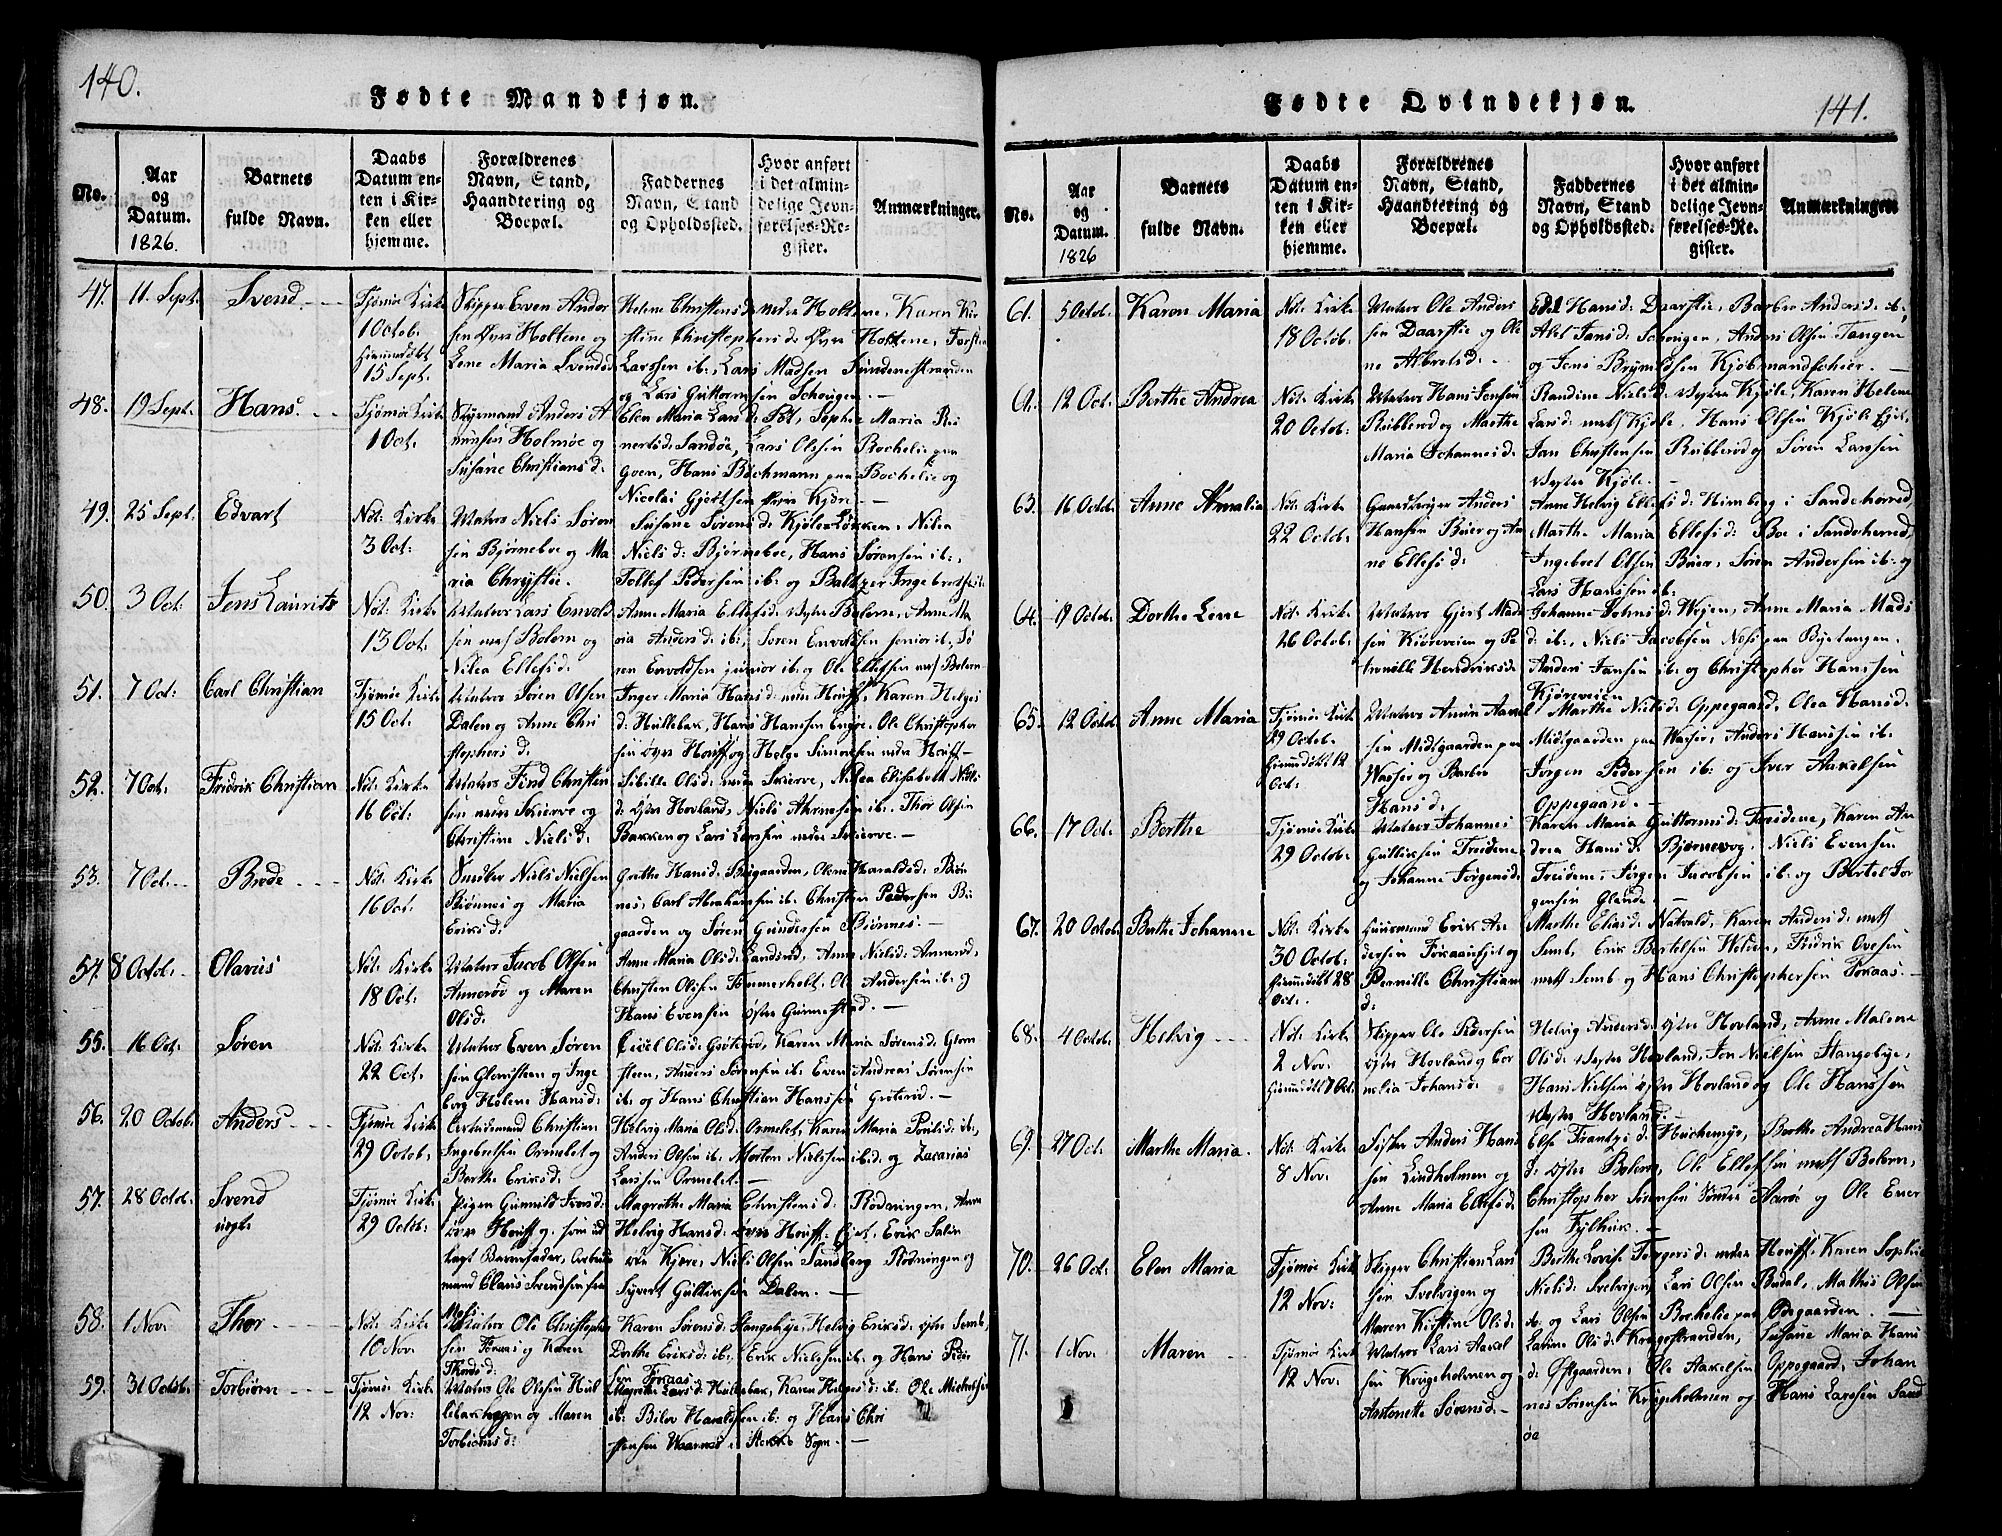 140.
Fødte Mandkjøn.
No.
Aar og Datum. 1826.
Barnets fulde Navn.
Daabs Datum enten i Kirken eller hjemme.
Forældrenes Navn, Stand, Haandtering og Boepæl.
Faddernes Navn, Stand og Opholdssted.
Hvor anført i det almindelige Jevnførelses-Register.
Anmærkninger.
47. 11 Sept. Svend
Tjømøe Kirke
1 Octob.
15 Sept.
Skipper Even Ander
sen Øvre Holtene og
Lene Maria Svendsd
Helene Christensd. nedre Holtene, Karen Kir
stine Christophersd. Øvre Holtene, Torsten
Larssen ib: Lars Madsen Sundenestranden
og Lars Guttormsen Schougen. —
48. 19 Sept. Hans.
Tjømøe Kirke
1 Oct.
Styrmand Anders A
Holmøe og
Susane Christiansd:
Elen Maria Larsd:
Sandøe, Lars Olssen Bochelie paa
Goen, Hans Bochmann paa Bochelie og
Nicolai Gjertsen
49. 25 Sept. Edvart
Nøt: Kirke
3 Oct:
Mator Niels Søren
sen Bjørneboe og Ma
ria Christie.
Susane Sørensd: Kjøle Løkken, Nilea
Nielsd: Bjørneboe, Hans Sørensen ib:,
Tollef Pedersen ib: og Baltzer Ingebretsen
50. 3 Oct: Jens Lauritz
Nøt: Kirke
13 Oct.
Mator Lars Envold
sen Bolern og
Nilea Ellefsd:
Anne Maria Ellefsd: Bolern, Anne Ma
ria Andersd: ib:, Soren Envoldsen senior ib:, Sø
ren Envoldsen junior ib: og Ole Ellefsen Bolern
51. 7 Oct: Carl Christian
Tjømøe Kirke
15 Oct.
Mator Søren Olsen
Dalen og Anne Chri
stophersd:
Inger Maria Hansd: Houff, Karen Helges
d: Hulbak, Hans Hanssen Enge, Ole Christopher
sen Øvre Houff og Helge Simonsen nedre Houff —
52. 7 Oct. Fridrik Christian
Nøt: Kirke
16 Oct:
Mator Find Christen
sen nedre Skierve og
Christine Nielsd:
Sibille Olsd: nedre Skierve, Nilea Elisabeth Niels
d: Østre Hovland, Niels Ahrnesen ib: Thor Olsen
Bakken og Lars Larssen nedre Skierve. —
53. 7 Oct. Brede
Nøt: Kirke
16 Oct.
Niels Nielsen
Biønnes og Maria
Eriksd:
Grethe Hansd: Buegaarden, Olene Haraldsd: Biøn
nes, Carl Abrahamsen ib: Christen Pedersen Bu
gaarden og Søren Gundersen Biønnes. —
54. 8 Octob. Olavus
Nøt: Kirke
18 Oct:
Mator Jacob Olsen
Annerød og Maren
Olsd:
Anne Maria Olsd: Sandsrød, Anne Nielsd: Annerød,
Christen Olsen Hummerholt, Ole Andersen ib: og
Hans Evensen Østre Gunnestad. —
55. 16 Oct. Søren
Nøt: Kirke
22 Oct.
Mator Even Søren
sen Glomsteen og Inge
borg Helene Hansd:
Olsd: Grøterød, Karen Maria Sørensd: Glom
steen, Anders Sørensen ib: Even Andreas Sørensen
ib: og Hans Christian Hanssen Grøterød. —
56. 20 Octob. Anders
Tjømøe Kirke
29 Octob.
Christian
Ingebretsen Ormelet og
Berthe Eriksd:
Helvig Maria Olsd: Ormelet, Karen Maria Poulsd: ib:,
Anders Olsen ib: Morten Nielssen ib: og Zacarias
Larssen Ormelet. —
57. 28 Octob. Svend
uægte
Tjømøe Kirke
29 Octb:
Pigen Gunnild Iversd:
øvre Houff og som ud
lagt Barnefader, Arbeids
mand Claus Svendsen
Magrethe Maria Christensd: Rødningen, Anne
Helvig Hansd: øvre Houff. Erik
Kjære, Niels Olsen Sandberg Rødningen og
Syvert Gulliksen Dalen. —
58. 1 Nov: Thor
Nøt: Kirke
10 Nov:
Mator Ole Christopher
sen og Karen
Karen Sørensd: Stangebye, Helvig Eriksd: Østre Semb,
Dorthe Eriksd: ib:, Erik Nielssen ib: og Hans Peder
sen
59. 31 Octob. Torbiørn
Tjømøe Kirke
12 Nov:
Mator Ole Olsen Hul
og Maren
Torbiørnsd:
Magrethe Larsd: Hulebak, Karen Helgesd: ib: Ole Michelsen
ib: og Hans Chri
stensen i Stokke Sogn. —
141.
Fødte Qvindekjøn.
No.
Aar og Datum. 1826
Barnets fulde Navn.
Daabs Datum enten i Kirken eller hjemme.
Forældrenes Navn, Stand, Haandtering og Boepæl.
Faddernes Navn, Stand og Opholdssted.
Hvor anført i det almindelige Jevnførelses-Register.
Anmærkninger
61. 5 Octob. Karen Maria
Nøt: Kirke
18 Octob:
Mator Ole Anders
sen Daarstie og Ole
ne Albretsd:
Hansd: Daarstie, Barbro Andersd: ib:,
Axel Jansd: Schougen, Anders Olsen Tangen
og Jens Brynildsen Kjøbmandskiær. —
12 Oct. Berthe Andrea
Nøt: Kirke
20 Octob:
Mator Hans Jensen
Ribberød og Marthe
Maria Johannesd:
Randine Nielsd: Vestre Kjøle, Karen Helene
Larsd: Kjøle, Hans Olsen Kjøle
Jan Christensen Ribberød og Søren Larssen
Vestre Kjøle. —
63. 16 Octob. Anne Amalia
Nøt: Kirke
22 Octob:
Gaardbruger Anders
Hansen Buer og An
ne Ellefsd:
Anne Helvig Ellefsd: Himberg i Sandeherred,
Marthe Maria Ellefsd: Boe i Sandeherred,
Ingebret Olsen Buer, Søren Andersen ib: og
Lars Hanssen ib:
64. 9 Octob. Dorthe Lene
Nøt: Kirke
26 Octob:
Mator Gjert Mad
sen Kjøreveien og Pe
tronelle Hendriksd:
Johanne Johnsd: Wejen, Anne Maria Mads
d: ib:, Niels Jacobsen Næs paa Bjetangen.
Anders Jansen ib: og Christopher Hanssen
Kjøreveien
65. 12 Octob. Anne Maria
Tjømøe Kirke
29 Octob.
Oct:
Aaxel
sen Midtgaarden paa
Wasser og Barbro
Hansd:
Marthe Nielsd: Oppegaard, Olea Hansd:
Midtgaarden paa Wasser, Anders Hanssen ib:
Jørgen Pedersen ib: og Iver Aaxelsen
Oppegaard. —
66. 17 Oct. Berthe
Tjømøe Kirke
29 Octob:
Mator Johannes
Gulliksen Treidene
og Johanne Jørgensd:
Karen Maria Guttormsd: Treidene, Karen An
drea Hansd: Bjørnevog, Niels Evensen
Treidene, Jørgen Jacobsen ib: og Bertel Jør
gensen Glende. —
67. 20 Octob. Berthe Johanne
Nøt: Kirke
30 Octob.
28
Oct.
Huusmand Erik An
dersen og
Pernille Christians
d:
Marthe Eliasd: Natvald, Karen Andersd:
Semb, Erik Bertelsen Fridrik Ovesen
Semb og Hans Christophersen —
68. 4 Octob. Helvig
Nøt: Kirke
2 Nov.
Skipper Ole Pedersen
Østre Hovland og Cor
nelia Johansd:
Helvig Andersd: Østre Hovland, Anne Malene
Olsd: Vestre Hovland, Jon Nielsen Stangebye,
Hans Nielsen Østre Hovland og Ole Hanssen
Vestre Hovland. —
69. 27 Oct: Marthe Maria.
Nøt: Kirke
8 Nov.
Fisker Anders Hans
sen Lindholmen og
Anne Maria Ellefsd:
Else Frantzd: Berthe Andrea Hans
d: Østre Bolern, Ole Ellefsen Bolern,
Christopher Sørensen Søndre Aarøe og Ole Ener
sen —
70. 26 Oct. Elen Maria
Tjømøe Kirke
12 Nov.
Skipper Christian Lars
sen Svelvigen og
Maren Kirstine Olsd:
Berthe Lovise Torgersd: nedre Houff, Karen Sophie
Nielsd: Svelvigen, Lars Olsen Budal, Mathis Olsen
ib: og Lars Olsen Bochelie paa Ødegaarden. —
71. 1 Nov. Maren
Tjømøe Kirke
12 Nov.
Mator Lars Aaxel
sen Krugeholmen og
Antonette Sørensd: —
Larine Olsd: Krugestranden, Susane Maria Hans
d: Østgaarden, Ole Aaxelsen Oppegaard, Johan
nes Sørensen Krugeholmen og Hans Larssen Sand
øe